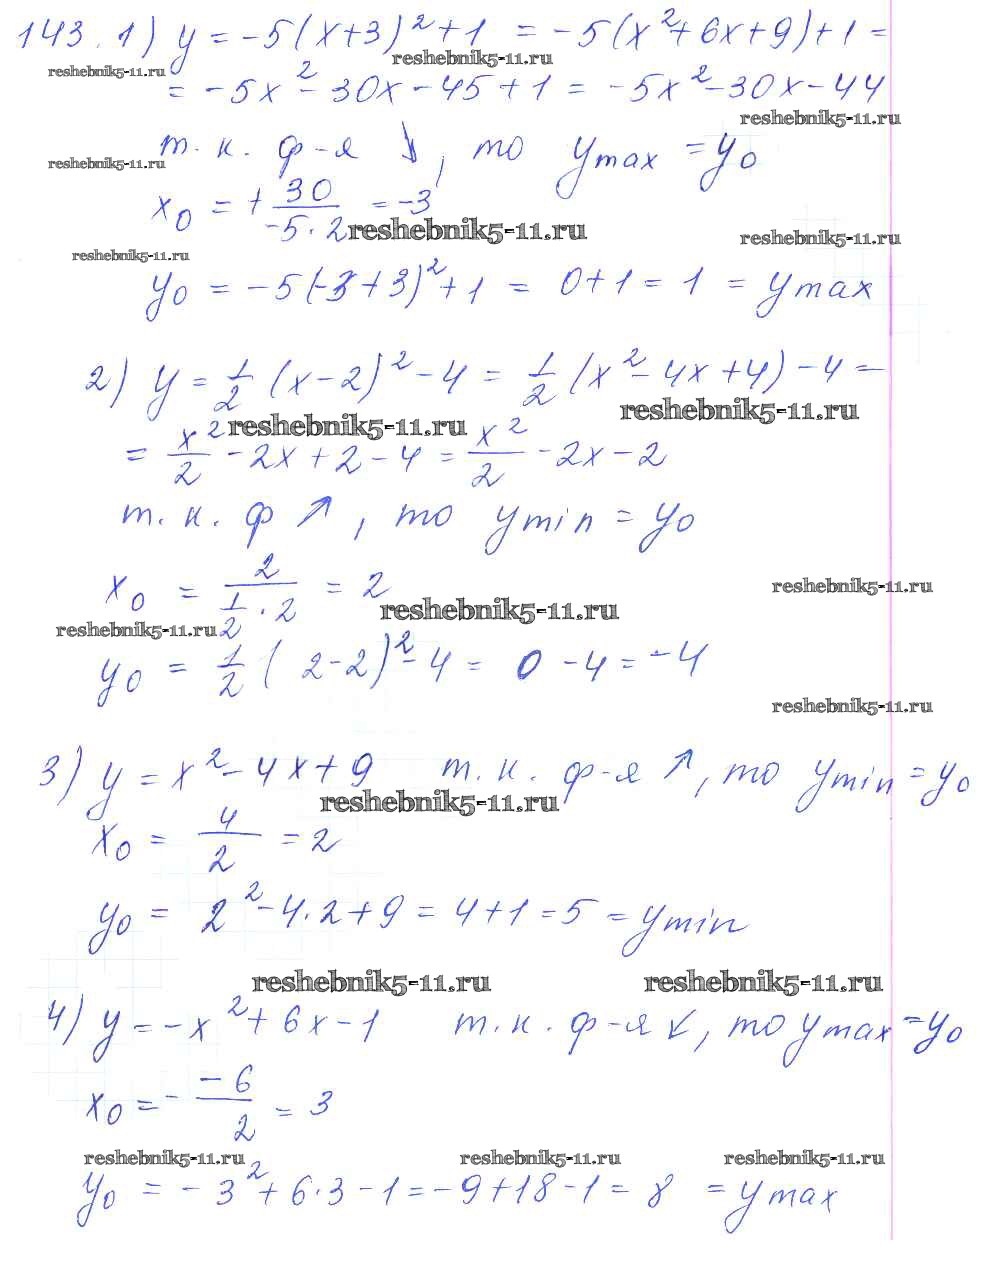 143. 1) y = -5(x+3)² + 1 = -5(x² + 6x + 9) + 1 =
reshebnik5-11.ru
reshebnik5-11.ru
= -5x² - 30x - 45 + 1 = -5x² - 30x - 44
reshebnik5-11.ru
т. к. ф-я ↘, то ymax = y₀
reshebnik5-11.ru
x₀ = + 30/(-5·2) = -3
reshebnik5-11.ru
reshebnik5-11.ru
reshebnik5-11.ru
y₀ = -5(-3+3)² + 1 = 0 + 1 = 1 = ymax
2) y = 1/2 (x-2)² - 4 = 1/2 (x² - 4x + 4) - 4 =
reshebnik5-11.ru
reshebnik5-11.ru
= x²/2 - 2x + 2 - 4 = x²/2 - 2x - 2
т. к. ф ↗, то ymin = y₀
x₀ = 2/(1/2 · 2) = 2
reshebnik5-11.ru
reshebnik5-11.ru
reshebnik5-11.ru
y₀ = 1/2 (2-2)² - 4 = 0 - 4 = -4
reshebnik5-11.ru
3) y = x² - 4x + 9 т. к. ф-я ↗, то ymin = y₀
reshebnik5-11.ru
x₀ = 4/2 = 2
y₀ = 2² - 4·2 + 9 = 4 + 1 = 5 = ymin
reshebnik5-11.ru reshebnik5-11.ru
4) y = -x² + 6x - 1 т. к. ф-я ↙, то ymax = y₀
x₀ = - -6/2 = 3
reshebnik5-11.ru reshebnik5-11.ru reshebnik5-11.ru
y₀ = -3² + 6·3 - 1 = -9 + 18 - 1 = 8 = ymax